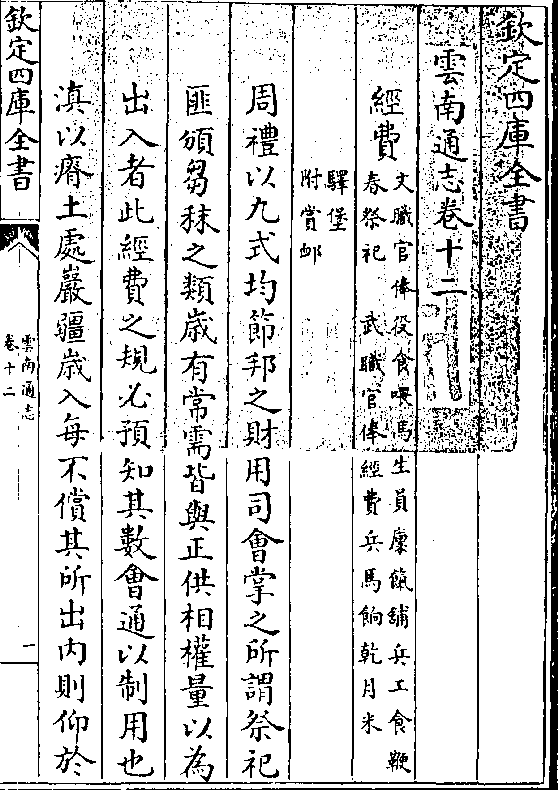 欽定四庫全書
雲南通志卷十二
經費
文職官俸役食喂馬生員廩餼舖兵工食鞭
春祭祀 武職官俸經費兵馬餉乾月米
驛堡
附賞卹
周禮以九式均節邦之財用司會掌之所謂祭祀
匪頒芻秣之類歲有常需皆與正供相權量以為
出入者此經費之規必預知其數會通以制用也
滇以瘠土處巖疆歲入每不償其所出内則仰於
欽定四庫全書
雲南通志
卷十二
一